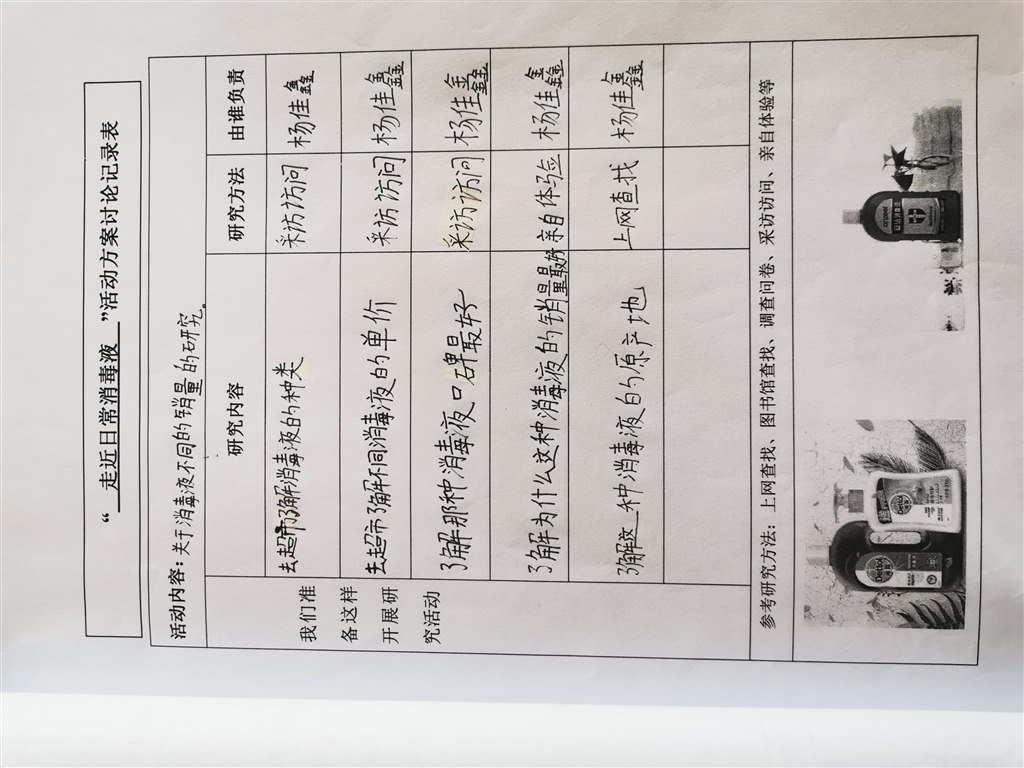 “ 走近日常消毒液 ”活动方案讨论记录表
活动内容：关于消毒液不同的销量的研究。
研究内容 研究方法 由谁负责
我们准
备这样
开展研
究活动
去超市了解消毒液的种类 采访访问 杨佳鑫
去超市了解不同消毒液的单价 采访访问 杨佳鑫
了解那种消毒液口碑最好 采访访问 杨佳鑫
了解为什么这种消毒液的销量最好 亲自体验 杨佳鑫
了解这种消毒液的原产地 上网查找 杨佳鑫
参考研究方法：上网查找、图书馆查找、调查问卷、采访访问、亲自体验等
Dettol
Dettol